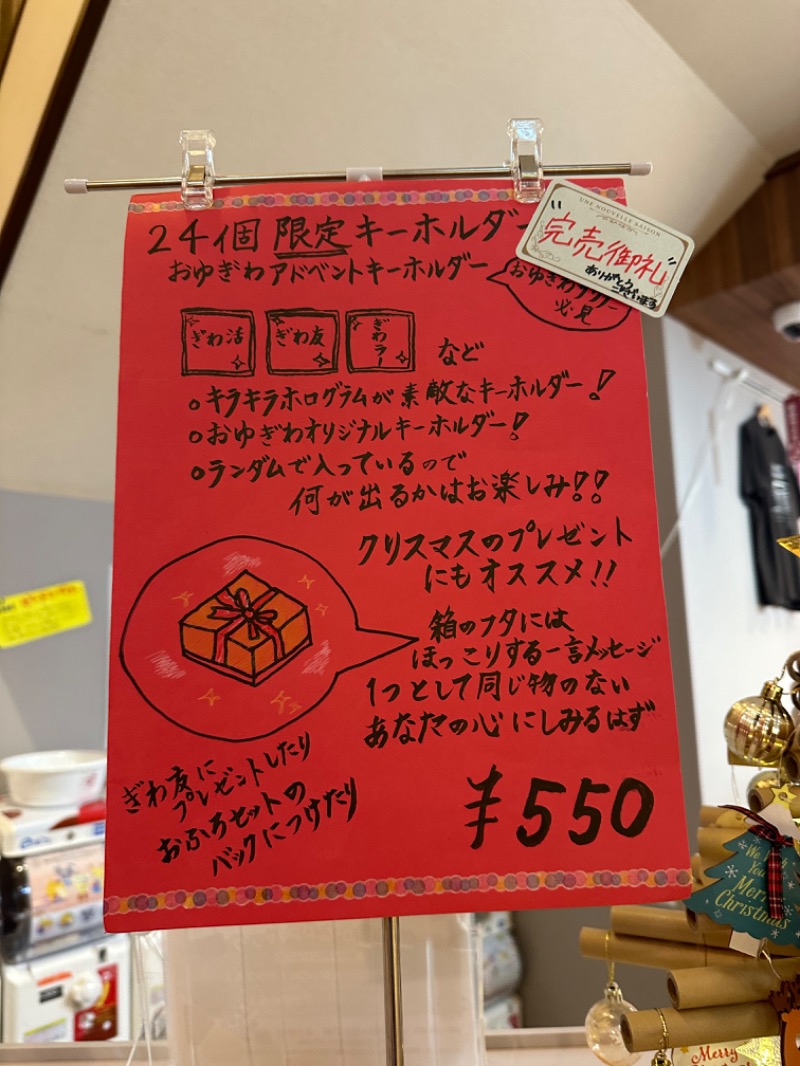 24個 限定 キーホルダー
UNE NOUVELLE SAISON
"完売御礼"
ありがとう
ございます
おゆぎわアドベントキーホルダー
おゆぎわ
必見
ぎわ活
ぎわ友
ぎわラー
など
○キラキラホログラムが素敵なキーホルダー!
○おゆぎわオリジナルキーホルダー!
○ランダムで入っているので
何が出るかはお楽しみ!!
クリスマスのプレゼント
にもオススメ!!
箱のフタには
ほっこりする一言メッセージ
1つとして同じ物のない
あなたの心にしみるはず
ぎわ友に
プレゼントしたり
おふろセットの
バックにつけたり
¥550
We Wish
You
Merry
Christmas
Merry